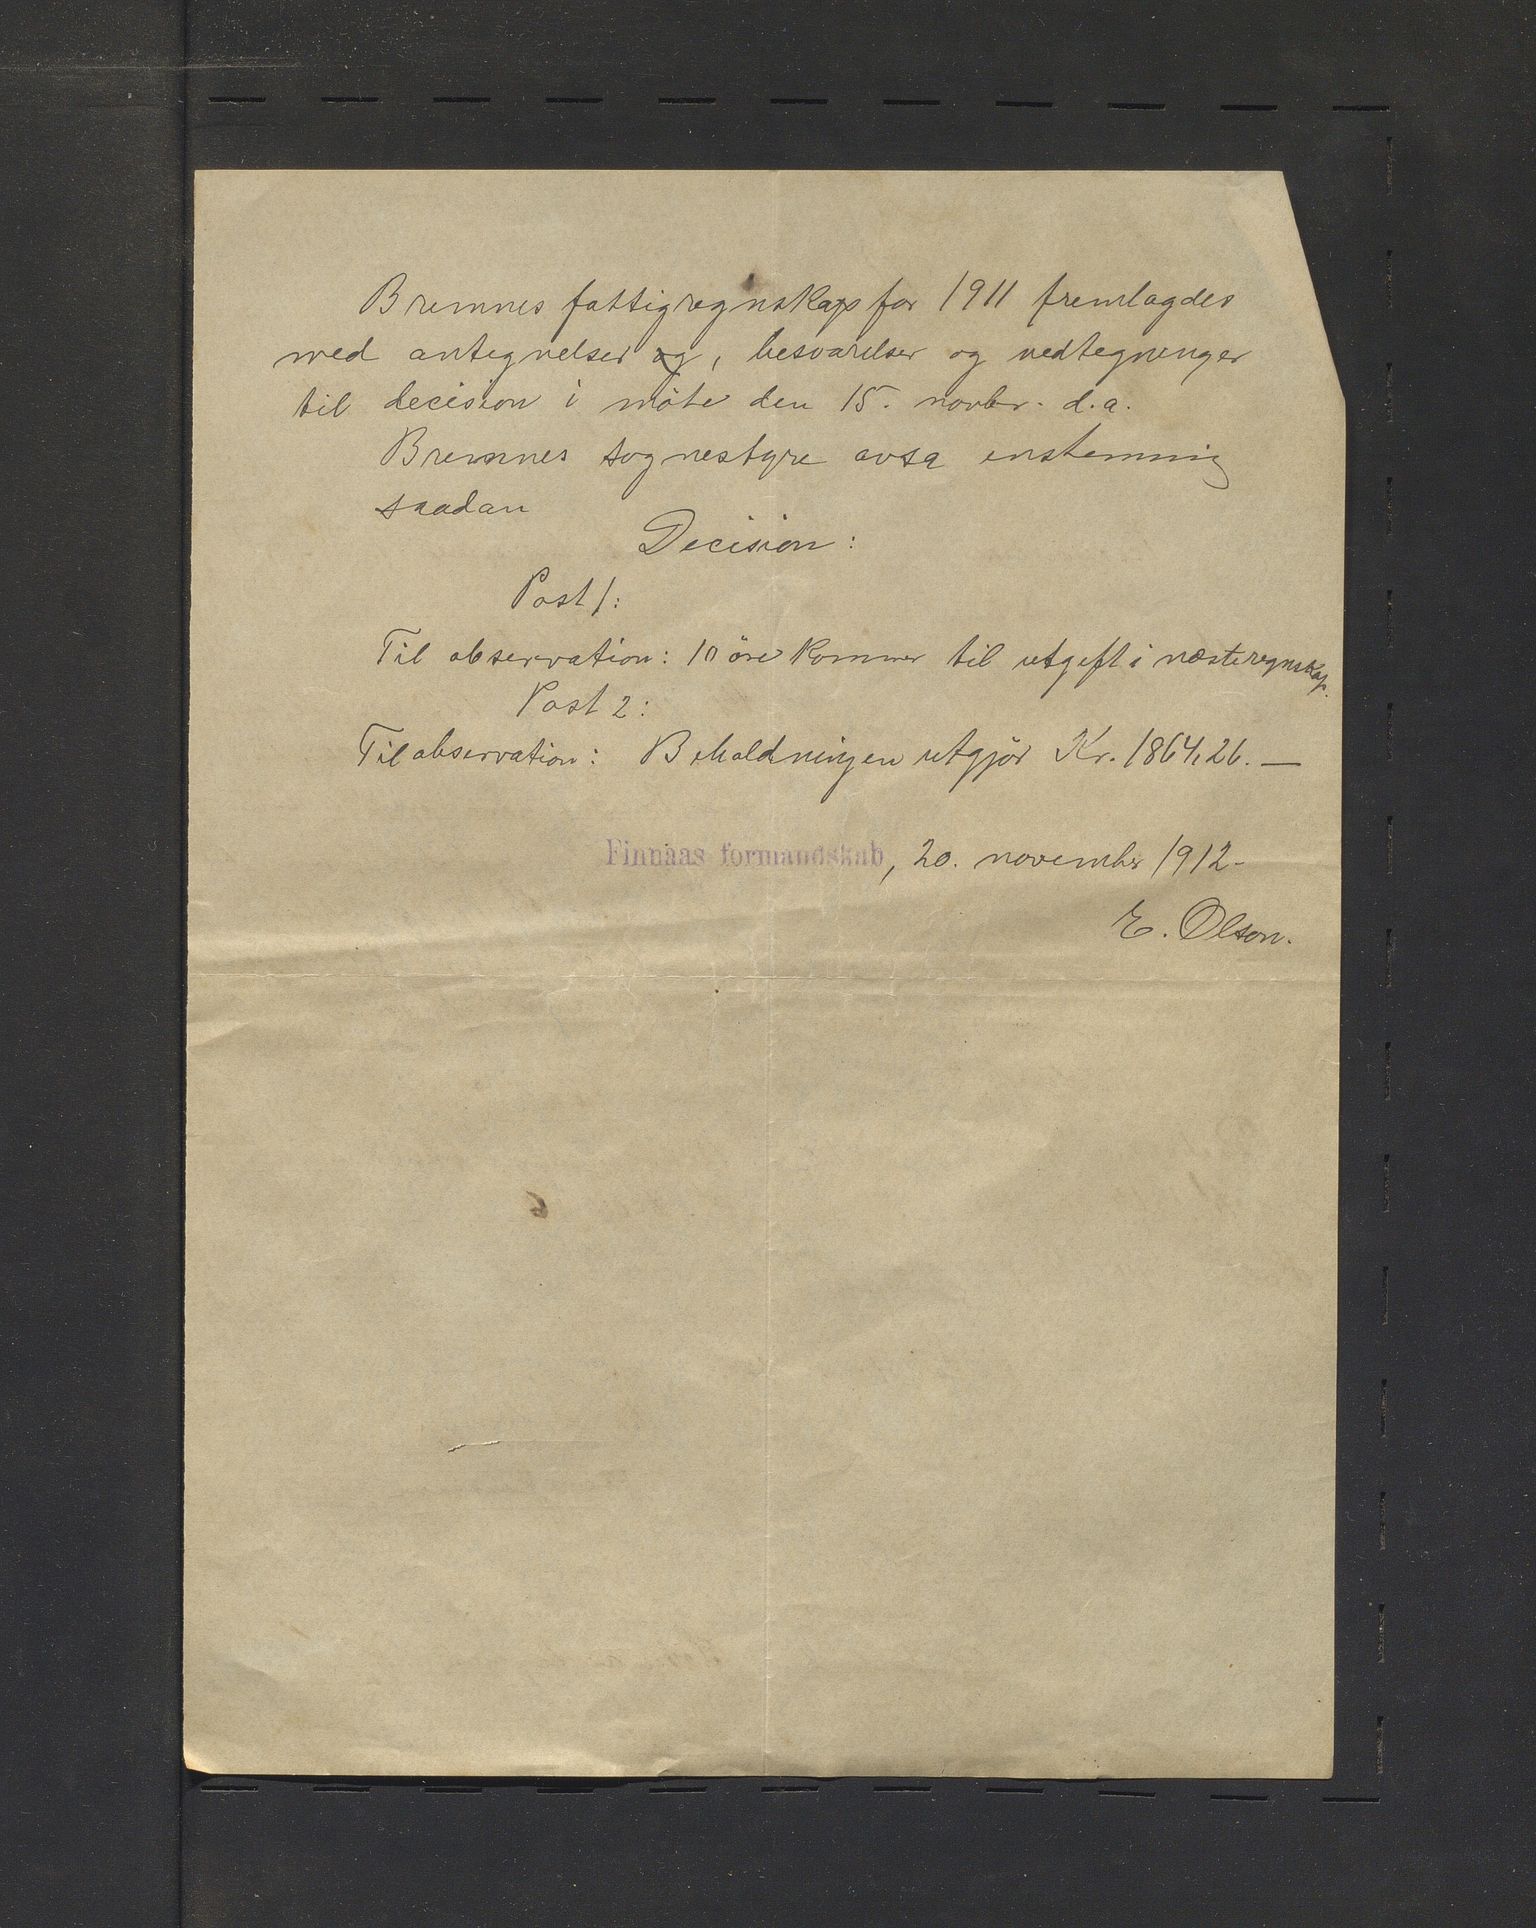 Bremnes fattigregnskap for 1911 fremlagdes
med antegnelser og, besvarelser og nedtegninger
til decision i möte den 15. novbr. d.a.
Bremnes sognestyre avsa enstemmig
saadan
Decision:
Post 1:
Til observation: 10 öre kommer til utgift i næste regnskap.
Post 2:
Til observation: Beholdningen utgjör Kr. 1864,26. —
Finnaas formandskab, 20. novembr 1912-
E. Olson.